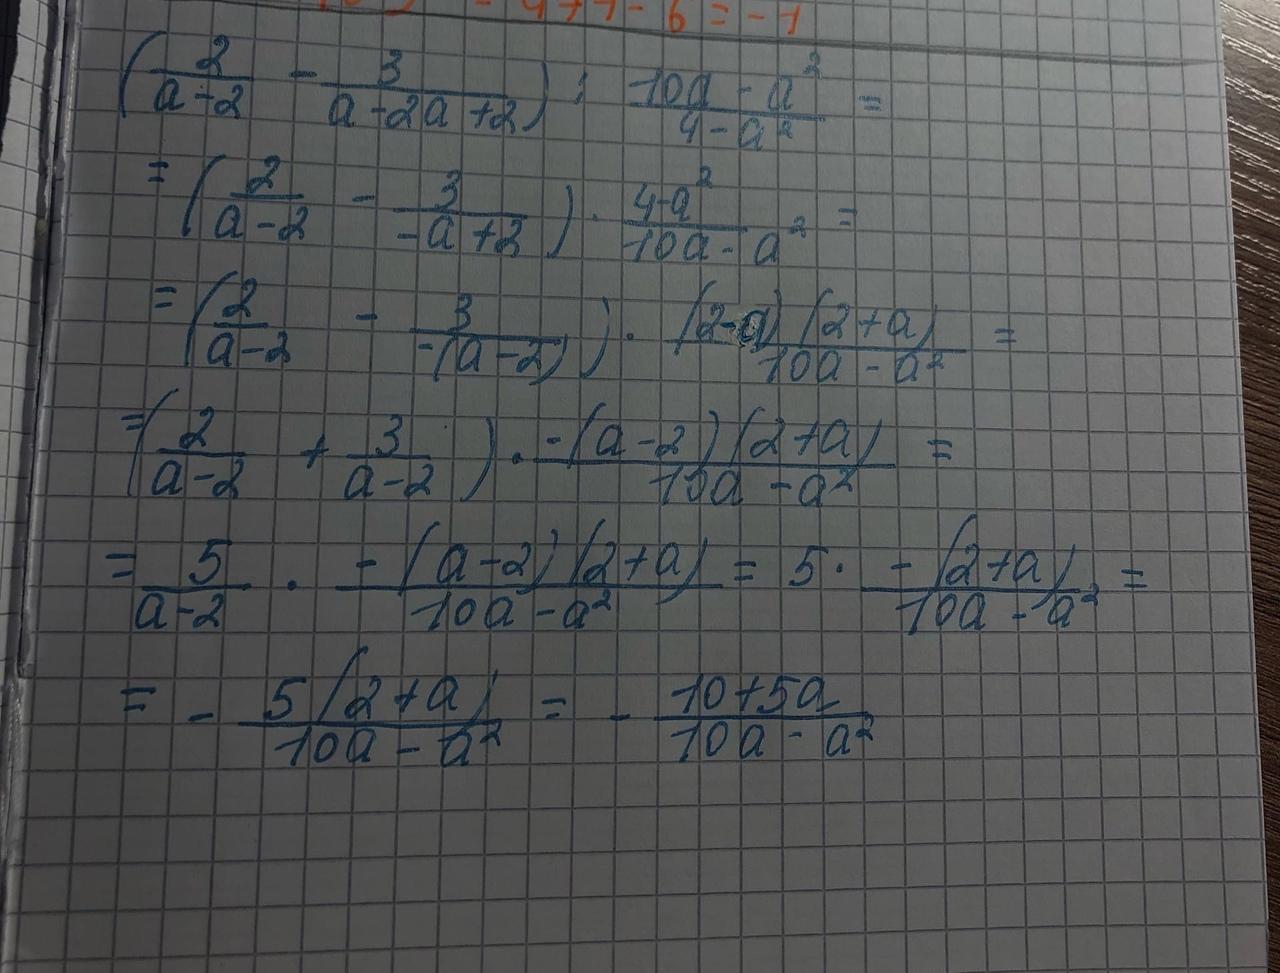 = -4+1-6 = -1
(2/(a-2) - 3/(a-2a+2)) : (10a-a²)/(4-a²) =
= (2/(a-2) - 3/(-a+2)) · (4-a²)/(10a-a²) =
= (2/(a-2) - 3/(-(a-2))) · ((2-a)(2+a))/(10a-a²) =
= (2/(a-2) + 3/(a-2)) · (-(a-2)(2+a))/(10a-a²) =
= 5/(a-2) · (-(a-2)(2+a))/(10a-a²) = 5 · (-(2+a))/(10a-a²) =
= - (5(2+a))/(10a-a²) = - (10+5a)/(10a-a²)